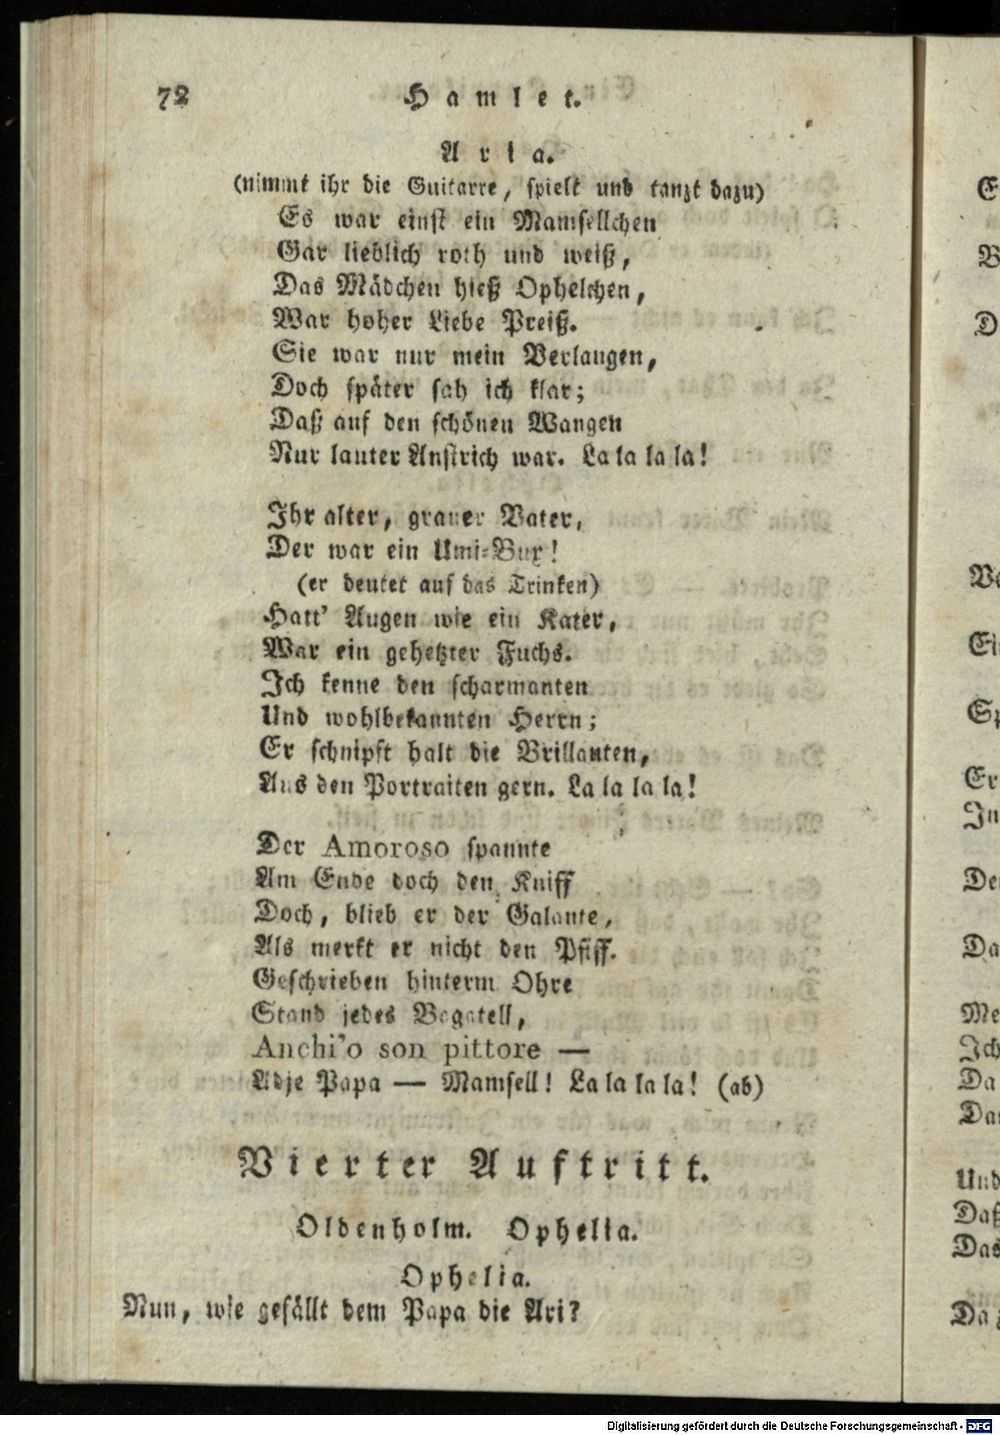 72 Hamlet.
Aria.
(nimmt ihr die Guitarre, spielt und tanzt dazu)
Es war einst ein Mamsellchen
Gar lieblich roth und weiß,
Das Mädchen hieß Ophelchen,
War hoher Liebe Preiß.
Sie war nur mein Verlangen,
Doch später sah ich klar;
Daß auf den schönen Wangen
Nur lauter Anstrich war. La la la la!
Ihr alter, grauer Vater,
Der war ein Umi-Bux!
(er deutet auf das Trinken)
Hatt' Augen wie ein Kater,
War ein gehetzter Fuchs.
Ich kenne den scharmanten
Und wohlbekannten Herrn;
Er schnipft halt die Brillanten,
Aus den Portraiten gern. La la la la!
Der Amoroso spannte
Am Ende doch den Kniff
Doch, blieb er der Galante,
Als merkt er nicht den Pfiff.
Geschrieben hinterm Ohre
Stand jedes Bagatell,
Anchi'o son pittore —
Adje Papa — Mamsell! La la la la! (ab)
Vierter Auftritt.
Oldenholm. Ophelia.
Ophelia.
Nun, wie gefällt dem Papa die Ari?
E
B
D
Ve
Ei
Sp
Er
In
De
Da
Me
Ich
Da
Da
Und
Daß
Das
Da
Digitalisierung gefördert durch die Deutsche Forschungsgemeinschaft - DFG